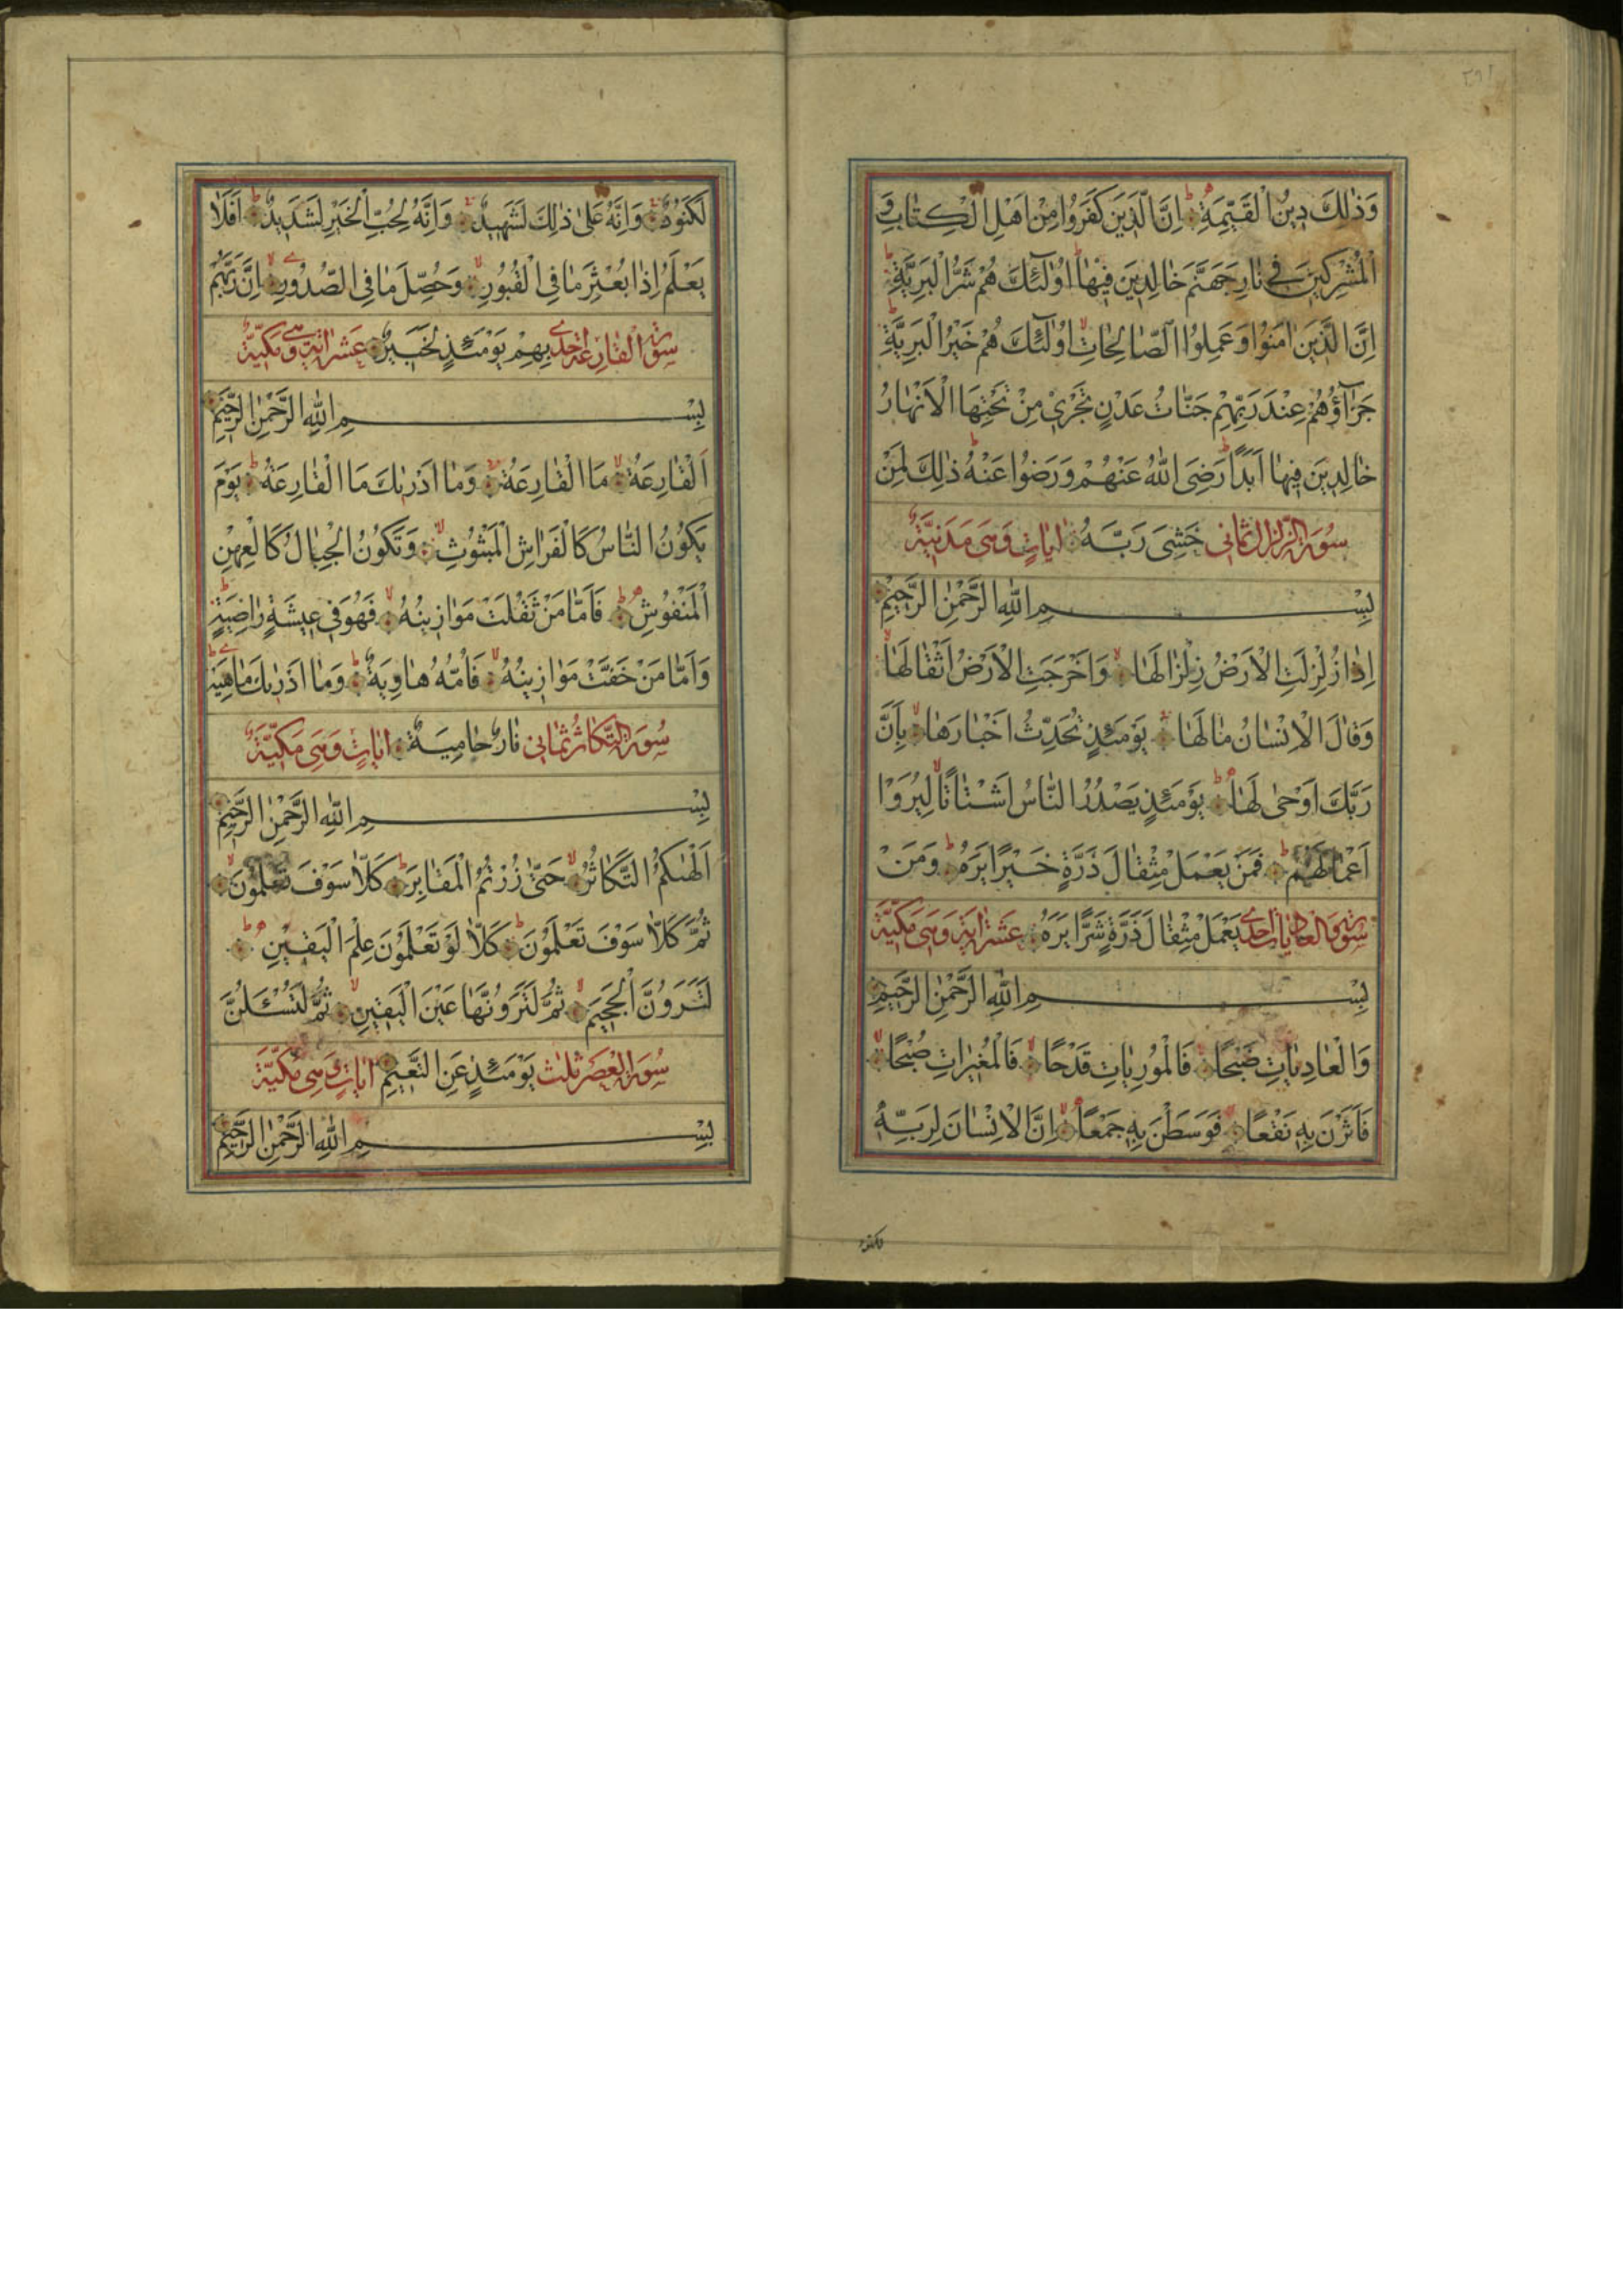 وَذٰلِكَ دِينُ الْقَيِّمَةِ اِنَّ الَّذِينَ كَفَرُوا مِنْ اَهْلِ الْكِتَابِ وَ
الْمُشْرِكِينَ فِي نَارِ جَهَنَّمَ خَالِدِينَ فِيهَا اُولٰٓئِكَ هُمْ شَرُّ الْبَرِيَّةِ
اِنَّ الَّذِينَ اٰمَنُوا وَعَمِلُوا الصَّالِحَاتِ اُولٰٓئِكَ هُمْ خَيْرُ الْبَرِيَّةِ
جَزَآؤُهُمْ عِنْدَ رَبِّهِمْ جَنَّاتُ عَدْنٍ تَجْرِي مِنْ تَحْتِهَا الْاَنْهَارُ
خَالِدِينَ فِيهَا اَبَدًا رَضِيَ اللّٰهُ عَنْهُمْ وَرَضُوا عَنْهُ ذٰلِكَ لِمَنْ
سُورَة الزلزال ثماني خَشِيَ رَبَّهُ اٰيَاتٍ وَهِيَ مَدَنِيَّةٌ
بِسْمِ اللّٰهِ الرَّحْمٰنِ الرَّحِيمِ
اِذَا زُلْزِلَتِ الْاَرْضُ زِلْزَالَهَا وَاَخْرَجَتِ الْاَرْضُ اَثْقَالَهَا
وَقَالَ الْاِنْسَانُ مَا لَهَا يَوْمَئِذٍ تُحَدِّثُ اَخْبَارَهَا بِاَنَّ
رَبَّكَ اَوْحٰى لَهَا يَوْمَئِذٍ يَصْدُرُ النَّاسُ اَشْتَاتًا لِيُرَوْا
اَعْمَالَهُمْ فَمَنْ يَعْمَلْ مِثْقَالَ ذَرَّةٍ خَيْرًا يَرَهُ وَمَنْ
سورة والعاديات احدى يَعْمَلْ مِثْقَالَ ذَرَّةٍ شَرًّا يَرَهُ عَشَرَ اٰيَة وَهِيَ مَكِّيَّةٌ
بِسْمِ اللّٰهِ الرَّحْمٰنِ الرَّحِيمِ
وَالْعَادِيَاتِ ضَبْحًا فَالْمُورِيَاتِ قَدْحًا فَالْمُغِيرَاتِ صُبْحًا
فَاَثَرْنَ بِهِ نَقْعًا فَوَسَطْنَ بِهِ جَمْعًا اِنَّ الْاِنْسَانَ لِرَبِّهِ
لَكَنُودٌ وَاِنَّهُ عَلٰى ذٰلِكَ لَشَهِيدٌ وَاِنَّهُ لِحُبِّ الْخَيْرِ لَشَدِيدٌ اَفَلَا
يَعْلَمُ اِذَا بُعْثِرَ مَا فِي الْقُبُورِ وَحُصِّلَ مَا فِي الصُّدُورِ اِنَّ رَبَّهُمْ
سورة القارعة احدى بِهِمْ يَوْمَئِذٍ لَخَبِيرٌ عَشَرَ اٰيَة وهي مَكِّيَّةٌ
بِسْمِ اللّٰهِ الرَّحْمٰنِ الرَّحِيمِ
اَلْقَارِعَةُ مَا الْقَارِعَةُ وَمَا اَدْرٰيكَ مَا الْقَارِعَةُ يَوْمَ
يَكُونُ النَّاسُ كَالْفَرَاشِ الْمَبْثُوثِ وَتَكُونُ الْجِبَالُ كَالْعِهْنِ
الْمَنْفُوشِ فَاَمَّا مَنْ ثَقُلَتْ مَوَازِينُهُ فَهُوَ فِي عِيشَةٍ رَاضِيَةٍ
وَاَمَّا مَنْ خَفَّتْ مَوَازِينُهُ فَاُمُّهُ هَاوِيَةٌ وَمَا اَدْرٰيكَ مَاهِيَهْ
سُورَة التكاثر ثماني نَارٌ حَامِيَةٌ اٰيَاتٍ وَهِيَ مَكِّيَّةٌ
بِسْمِ اللّٰهِ الرَّحْمٰنِ الرَّحِيمِ
اَلْهٰيكُمُ التَّكَاثُرُ حَتّٰى زُرْتُمُ الْمَقَابِرَ كَلَّا سَوْفَ تَعْلَمُونَ
ثُمَّ كَلَّا سَوْفَ تَعْلَمُونَ كَلَّا لَوْ تَعْلَمُونَ عِلْمَ الْيَقِينِ
لَتَرَوُنَّ الْجَحِيمَ ثُمَّ لَتَرَوُنَّهَا عَيْنَ الْيَقِينِ ثُمَّ لَتُسْئَلُنَّ
سُورَة العصر ثلث يَوْمَئِذٍ عَنِ النَّعِيمِ اٰيَاتٍ وَهِيَ مَكِّيَّةٌ
بِسْمِ اللّٰهِ الرَّحْمٰنِ الرَّحِيمِ